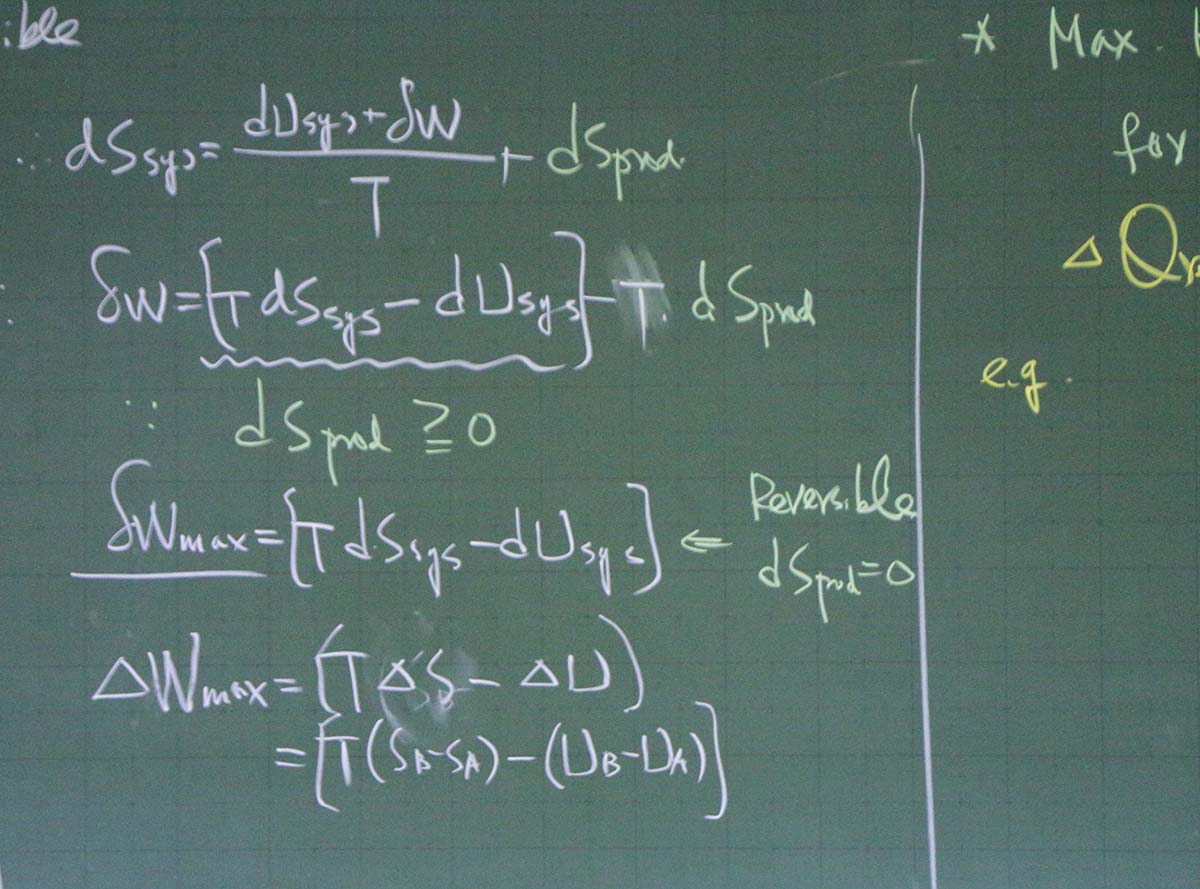 ible
∴ dSsys = (dUsys + δW) / T + dSprod.
∴ δW = [T dSsys − dUsys] − T. dSprod
∵ dSprod ≧ 0
δWmax = [T dSsys − dUsys] ⇐ Reversible dSprod = 0
ΔWmax = (T ΔS − ΔU)
= [T(SB−SA) − (UB−UA)]
* Max.
for
Δ Q
e.g.